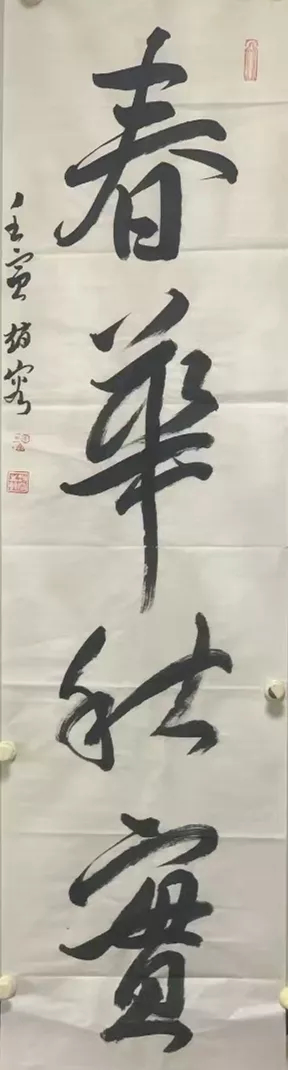 春華秋實
壬寅